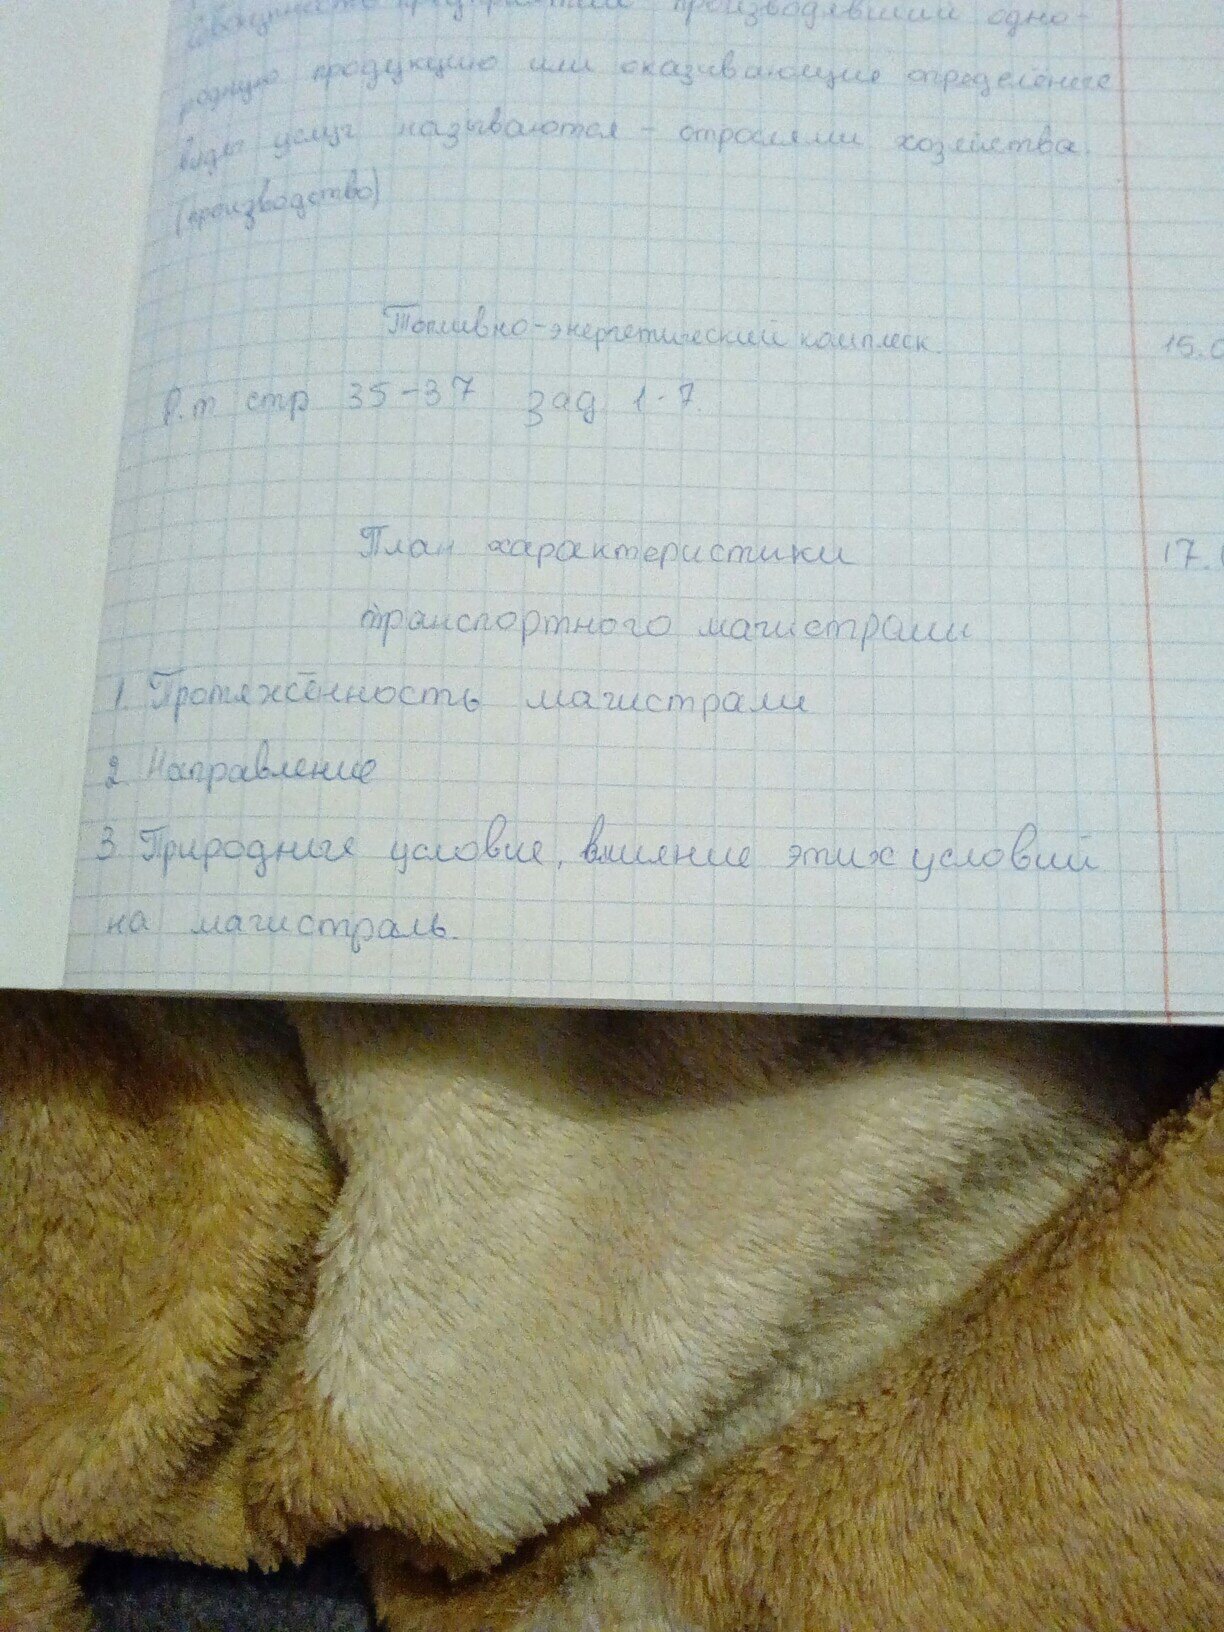 совокупность предприятий производявший одно-
родную продукцию или оказивающие определённые
виды услуг называются - отраслями хозяйства.
(производство)
Топливно-энергетический комплеск.
15.0
Р.т стр 35-37 зад 1-7.
План характеристики
17.
транспортного магистрали
1. Протяжённость магистрали
2 Направление
3 Природные условие, влияние этих условий
на магистраль.